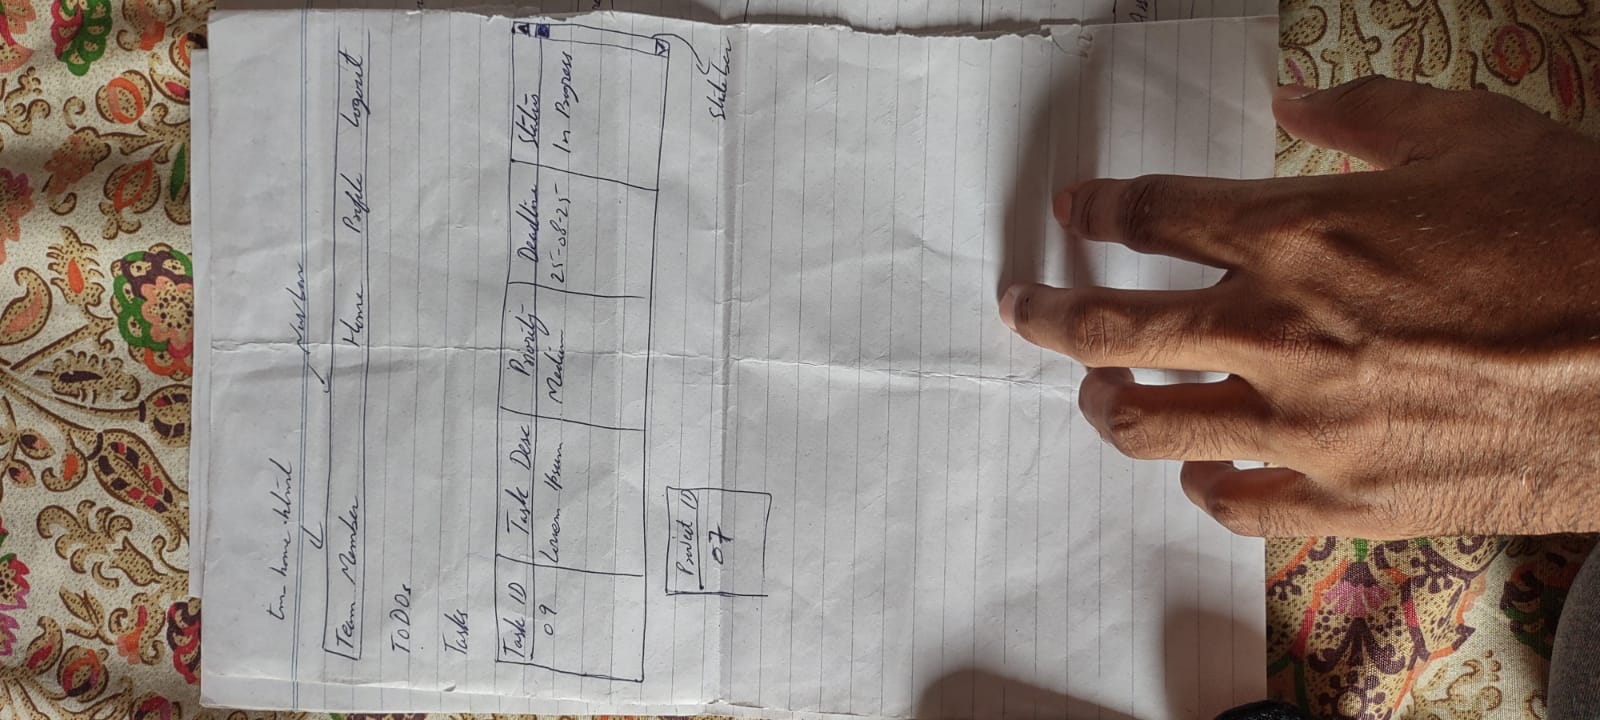 tm home.html
Navbar
Team Member Home Profile Logout
TODOs
Tasks
Task ID Task Desc Priority Deadline Status
09 Lorem Ipsum Medium 25-08-25 In Progress
Project ID
07